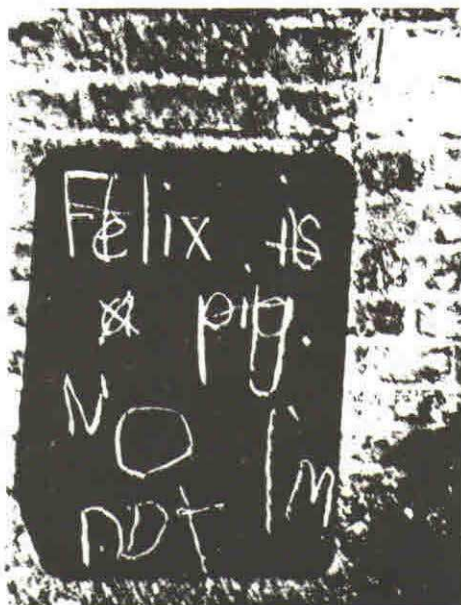 Felix is
a pig.
NO I'm
not